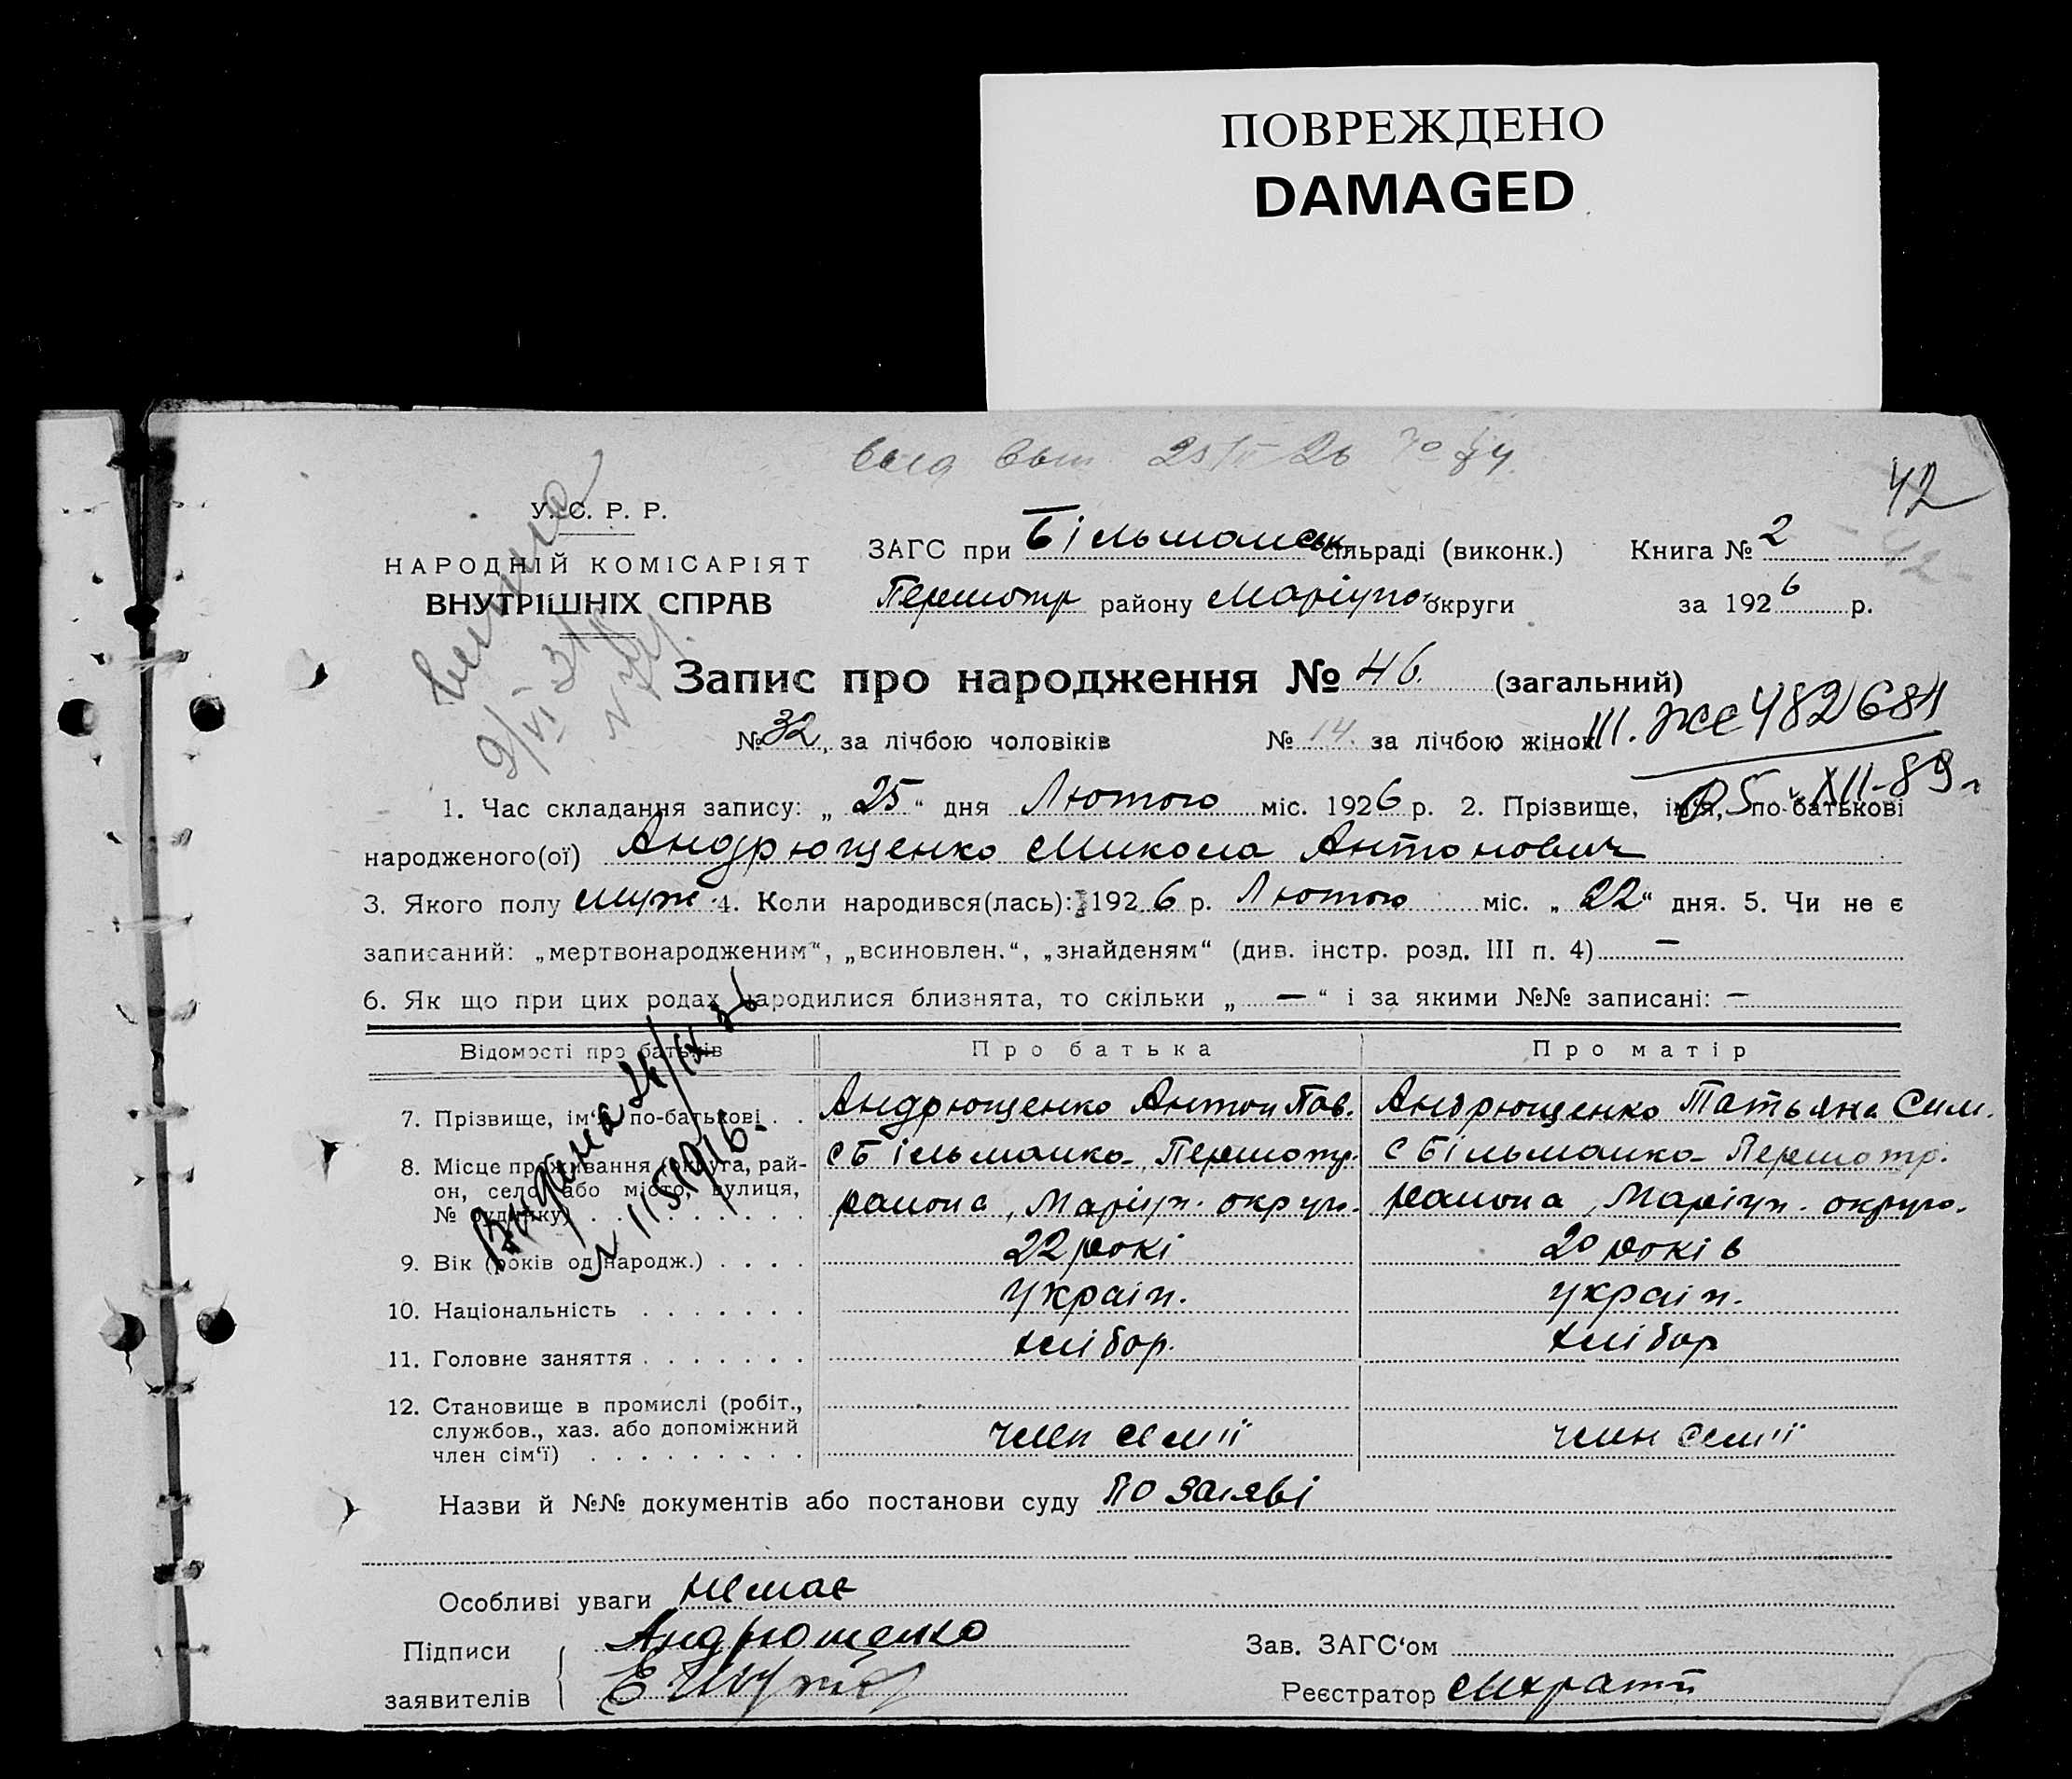 ПОВРЕЖДЕНО
DAMAGED
42
У. С. Р. Р.
НАРОДНІЙ КОМІСАРІЯТ
ВНУТРІШНІХ СПРАВ
ЗАГС при Більманськ сільраді (виконк.) Книга № 2
Першотр району Маріупо округи за 1926 р.
Запис про народження № 46. (загальний)
№ 32, за лічбою чоловіків № 14. за лічбою жінок
III. ЖС 482684
05. XII-89 г
1. Час складання запису: „ 25 “ дня Лютого міс. 1926 р. 2. Прізвище, ім'я, по-батькові
народженого(ої) Андрющенко Микола Антонович
3. Якого полу муж 4. Коли народився(лась): 1926 р. Лютого міс. „ 22 “ дня. 5. Чи не є
записаний: „мертвонародженим“, „всиновлен.“, „знайденям“ (див. інстр. розд. III п. 4) —
6. Як що при цих родах народилися близнята, то скільки „ — “ і за якими №№ записані: —
Відомості про батьків Про батька Про матір
7. Прізвище, ім‘я по-батькові . . Андрющенко Антон Пав. Андрющенко Татьяна Сим.
8. Місце проживання (округа, рай-
он, село або місто, вулиця,
№ будинку) с Більманка, Першотр. района, Маріуп. округ. с Більманка Першотр. района, Маріуп. округ.
9. Вік (років од народж.) . . . . 22 рокі 20 років
10. Національність . . . . . . . Украін. Украін.
11. Головне заняття . . . . . . . хлібор. хлібор
12. Становище в промислі (робіт.,
службов., хаз. або допоміжний
член сім‘ї) . . . . . . . . . член семіі член семіі
Видана
Назви й №№ документів або постанови суду по заяві
Особливі уваги немає
Підписи Андрющенко Зав. ЗАГС‘ом
заявителів Реєстратор